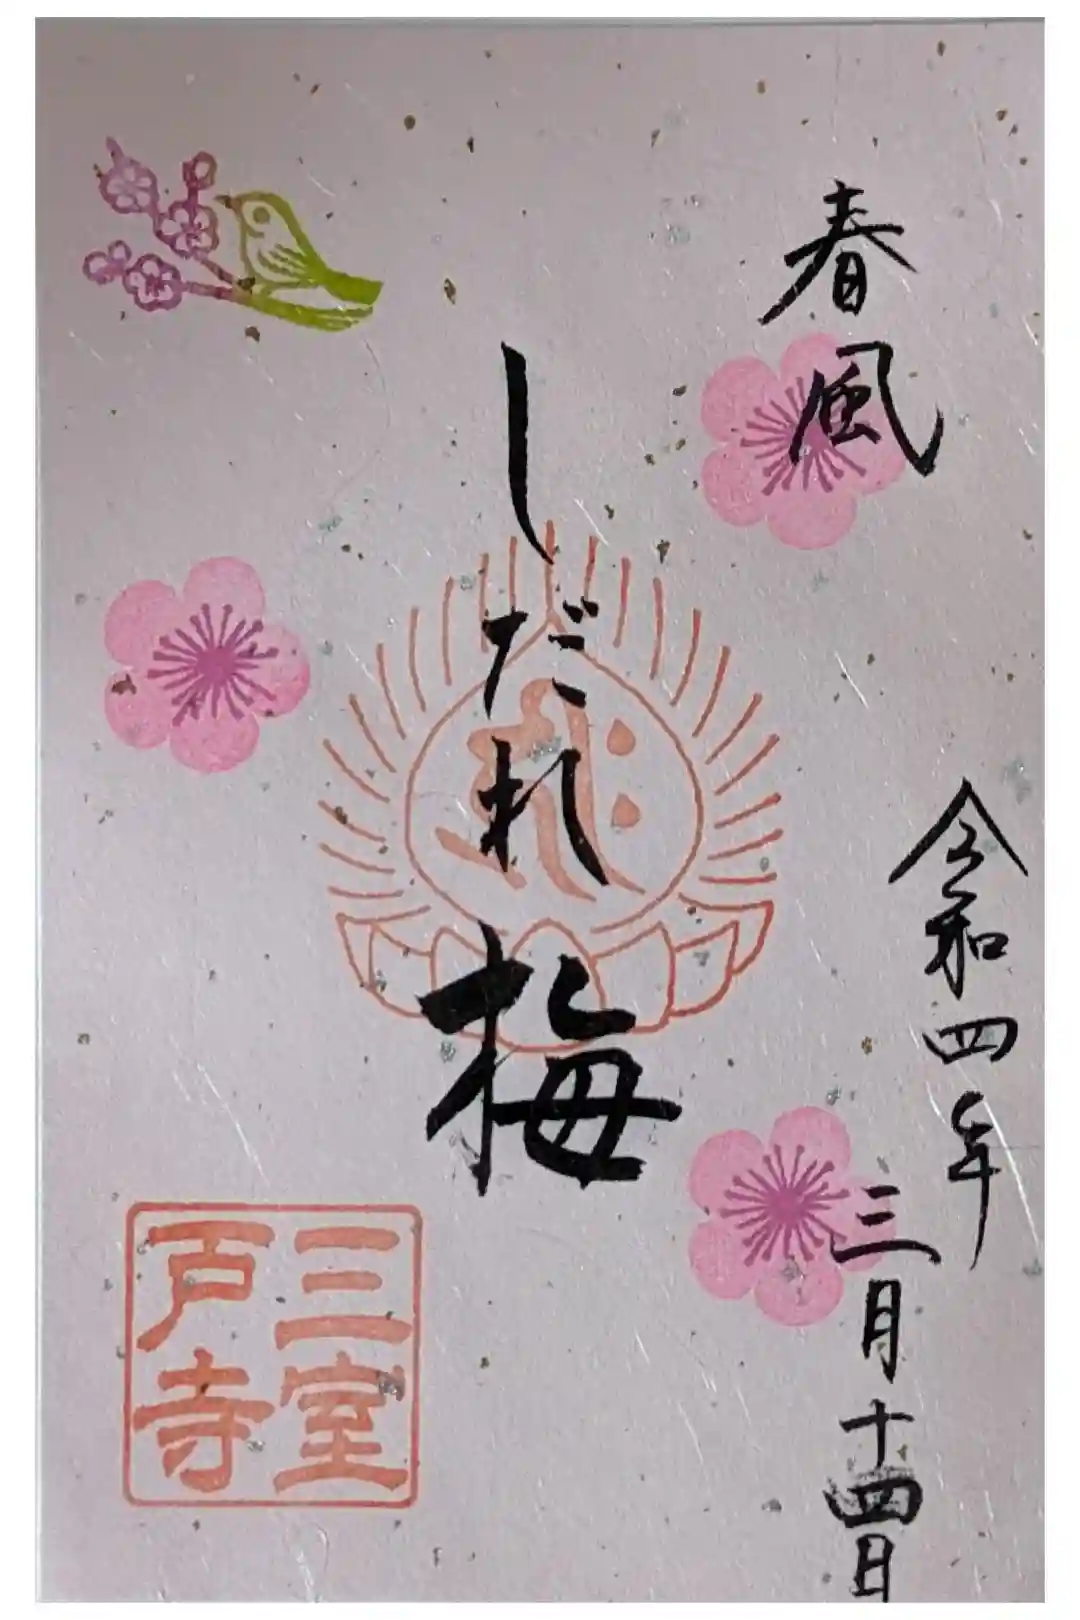 春風
令和四年
三月十四日
しだれ梅
三室
戸寺